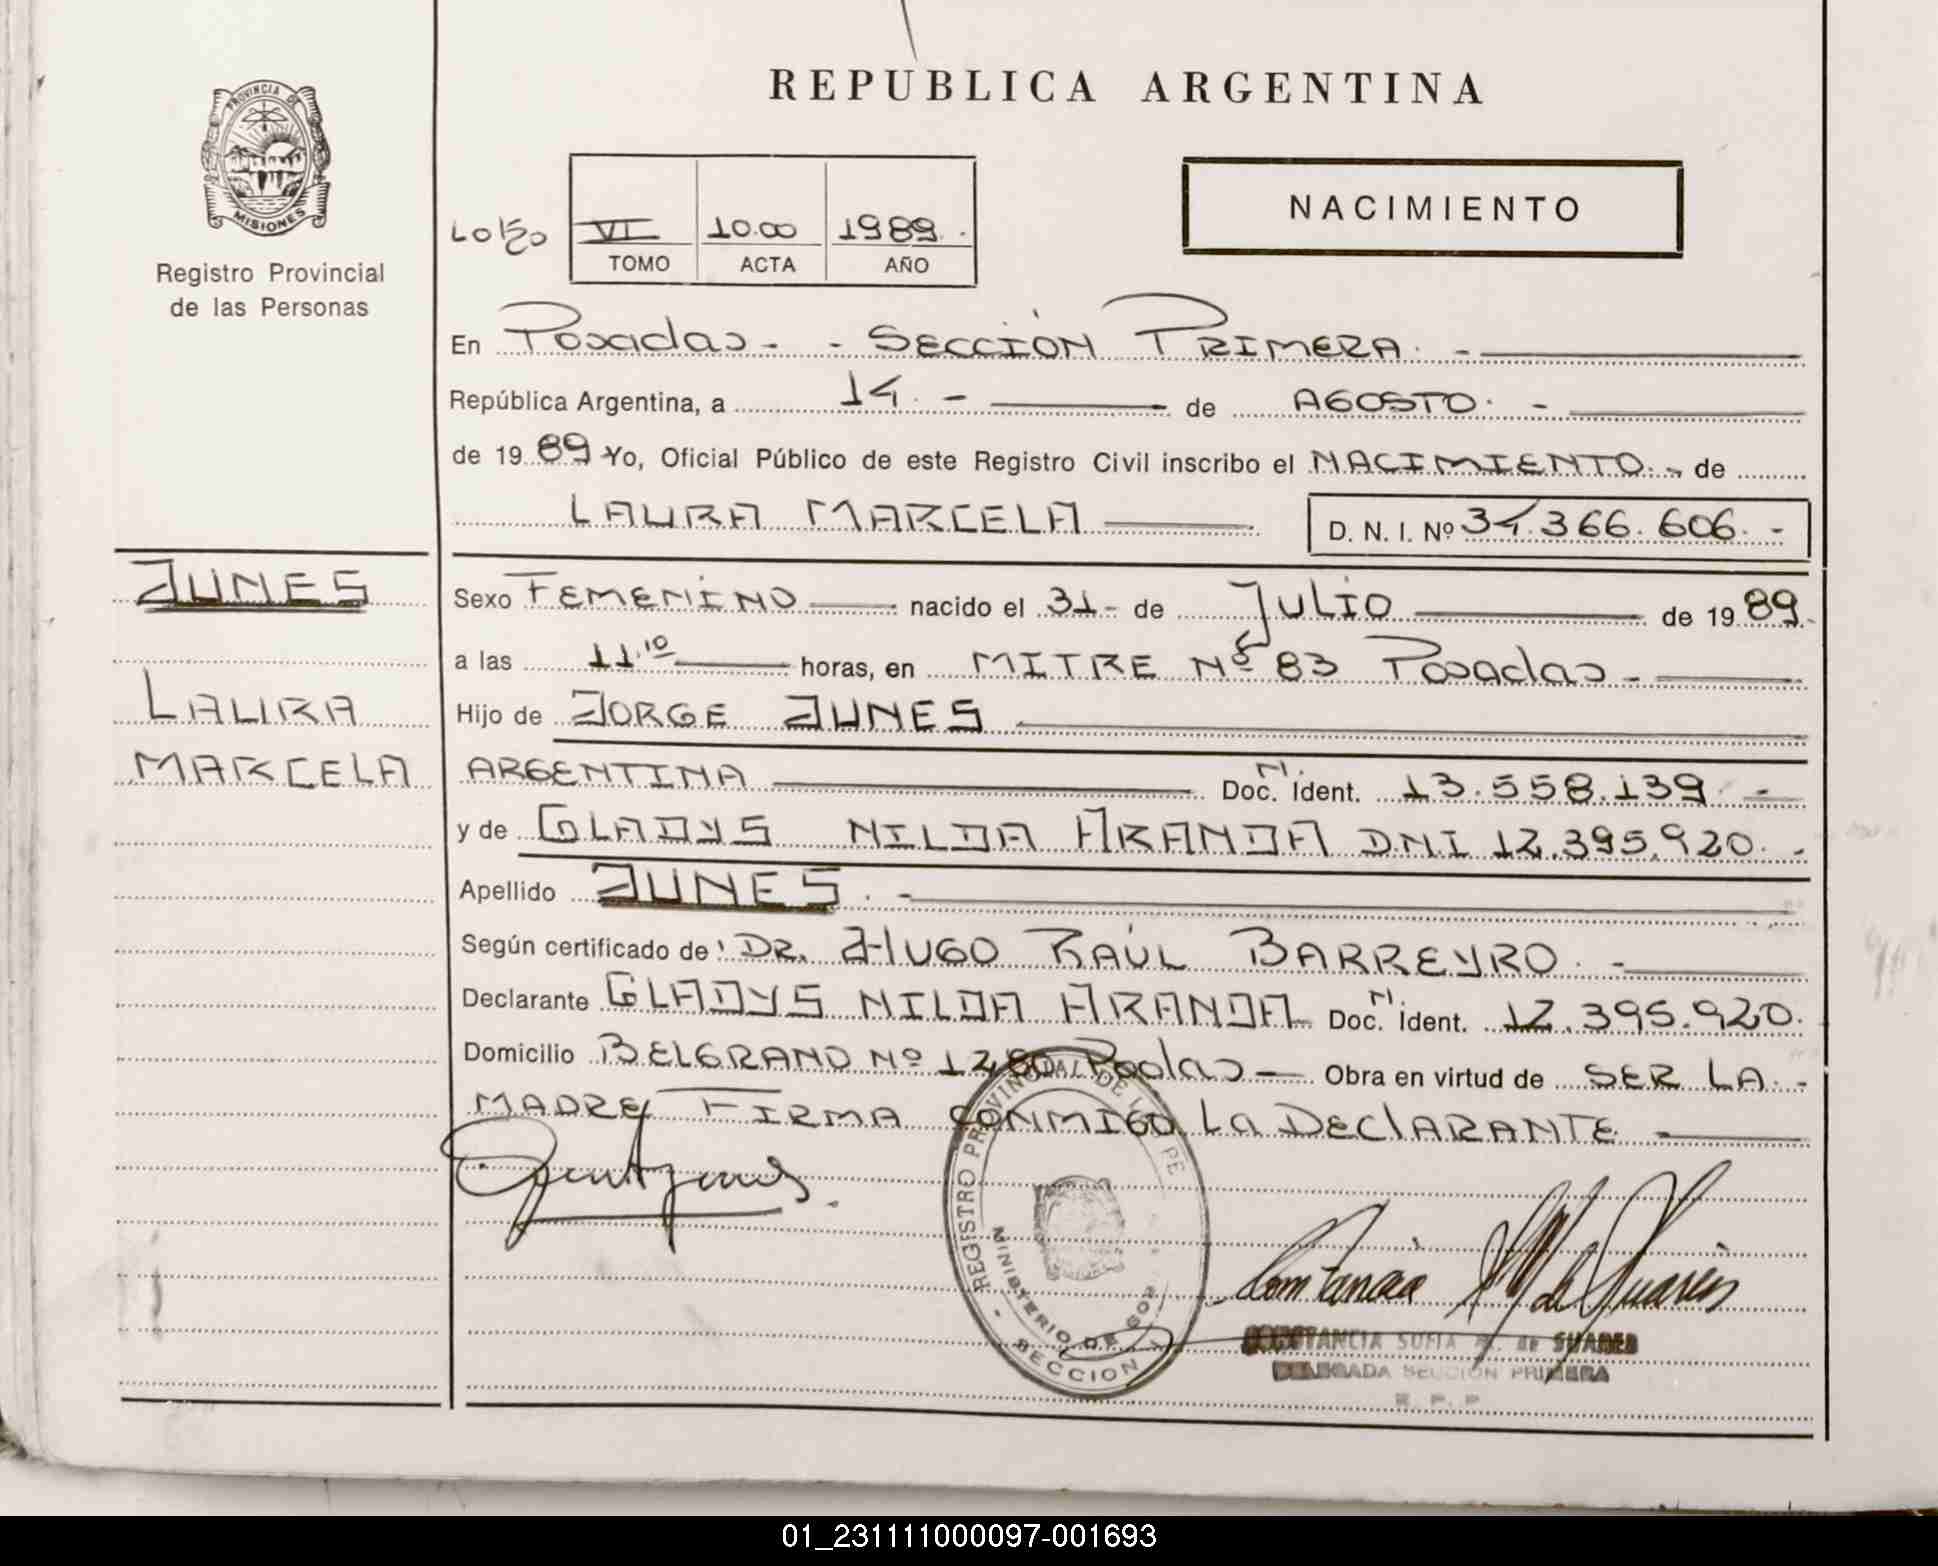 REPUBLICA ARGENTINA
PROVINCIA DE
MISIONES
Registro Provincial
de las Personas
VI 10.00 1989.
TOMO ACTA AÑO
NACIMIENTO
En Posadas - - SECCIÓN PRIMERA. -
República Argentina, a 14. - de AGOSTO. -
de 1989 Yo, Oficial Público de este Registro Civil inscribo el NACIMIENTO.- de
LAURA MARCELA D. N. I. Nº 34.366.606. -
JUNES
LAURA
MARCELA
Sexo FEMENINO nacido el 31- de JULIO de 1989.
a las 11.10 horas, en MITRE Nº 83 Posadas -
Hijo de JORGE JUNES
ARGENTINA Doc. N. Ident. 13.558.139 -
y de GLADYS NILDA ARANDA DNI 12.395.920. -
Apellido JUNES. -
Según certificado de: DR. HUGO RAÚL BARREYRO. -
Declarante GLADYS NILDA ARANDA Doc. N. Ident. 12.395.920.
Domicilio BELGRANO Nº 1280 Posdas Obra en virtud de SER LA. -
MADRE FIRMA CONMIGO LA DECLARANTE -
REGISTRO PROVINCIAL DE L PE
MINISTERIO DE GOB
SECCION
Constancia M de Suarez
CONSTANCIA SOFIA M. de SUAREZ
DELEGADA SECCIÓN PRIMERA
R. P. P
01_231111000097-001693